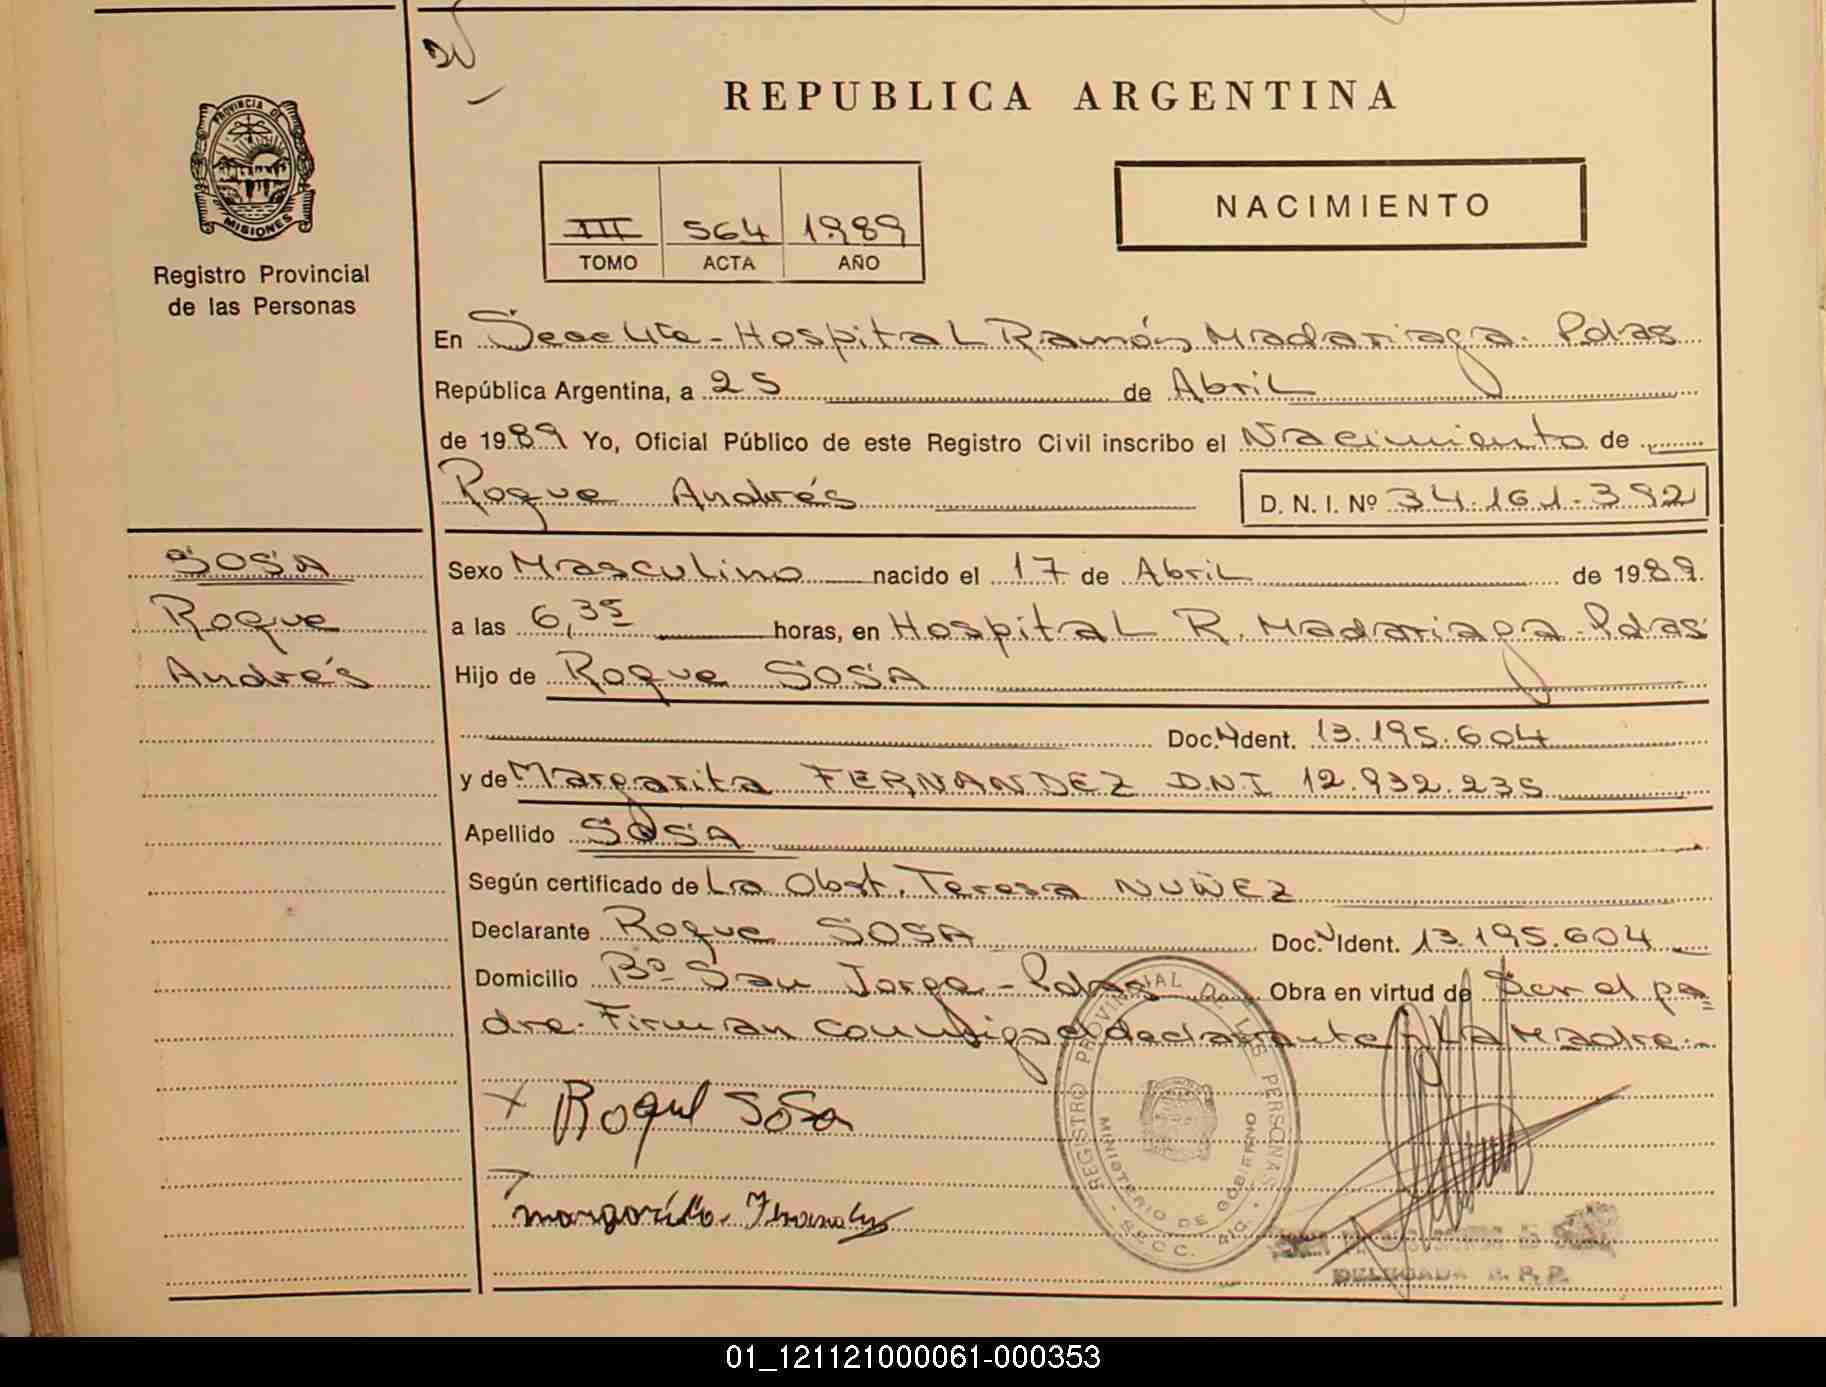 REPUBLICA ARGENTINA
PROVINCIA DE
MISIONES
Registro Provincial
de las Personas
NACIMIENTO
III 564 1989
TOMO ACTA AÑO
En Secc 4te - Hospital Ramón Madariaga. Pdas
República Argentina, a 25 de Abril
de 1989 Yo, Oficial Público de este Registro Civil inscribo el Nacimiento de
Roque Andrés D. N. I. Nº 34.161.392
SOSA
Roque
Andrés
Sexo Masculino nacido el 17 de Abril de 1989.
a las 6,35 horas, en Hospital R. Madariaga - Pdas
Hijo de Roque SOSA
Doc. N Ident. 13.195.604
y de Margarita FERNANDEZ D.N.I 12.932.235
Apellido SOSA
Según certificado de La Obst. Teresa NUÑEZ
Declarante Roque SOSA Doc. N Ident. 13.195.604
Domicilio Bº San Jorge - Pdas Obra en virtud de Ser el pa-
dre. Firman conmigo el declarante y La Madre.-
x Roque Sosa
margarita Fernandez
REGISTRO PROVINCIAL DE LAS PERSONAS
MINISTERIO DE GOBIERNO
DELEGADA R. P. P.
01_121121000061-000353